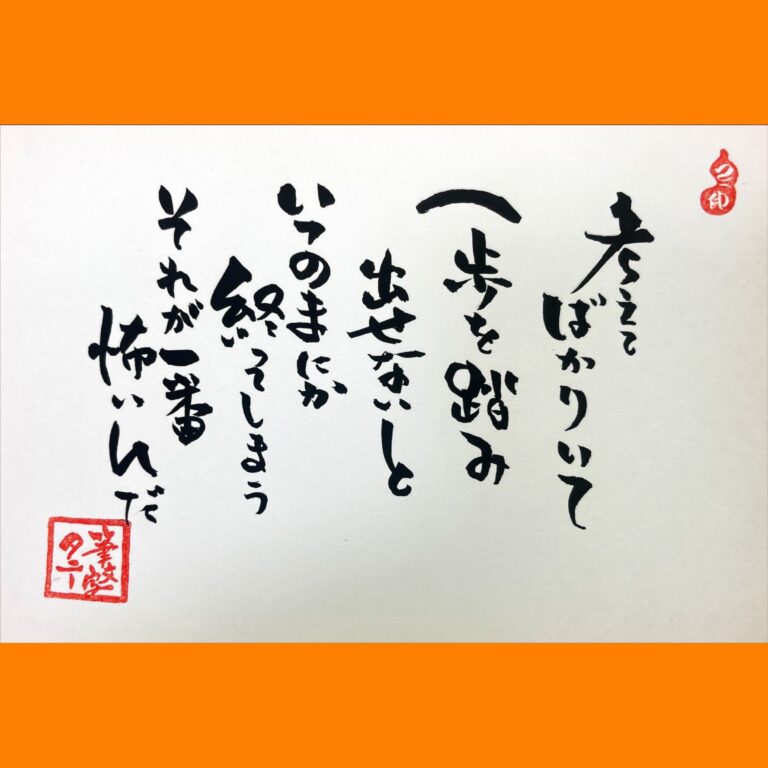 考えて
ばかりいて
一歩を踏み
出せないと
いつのまにか
終ってしまう
それが一番
怖いんだ